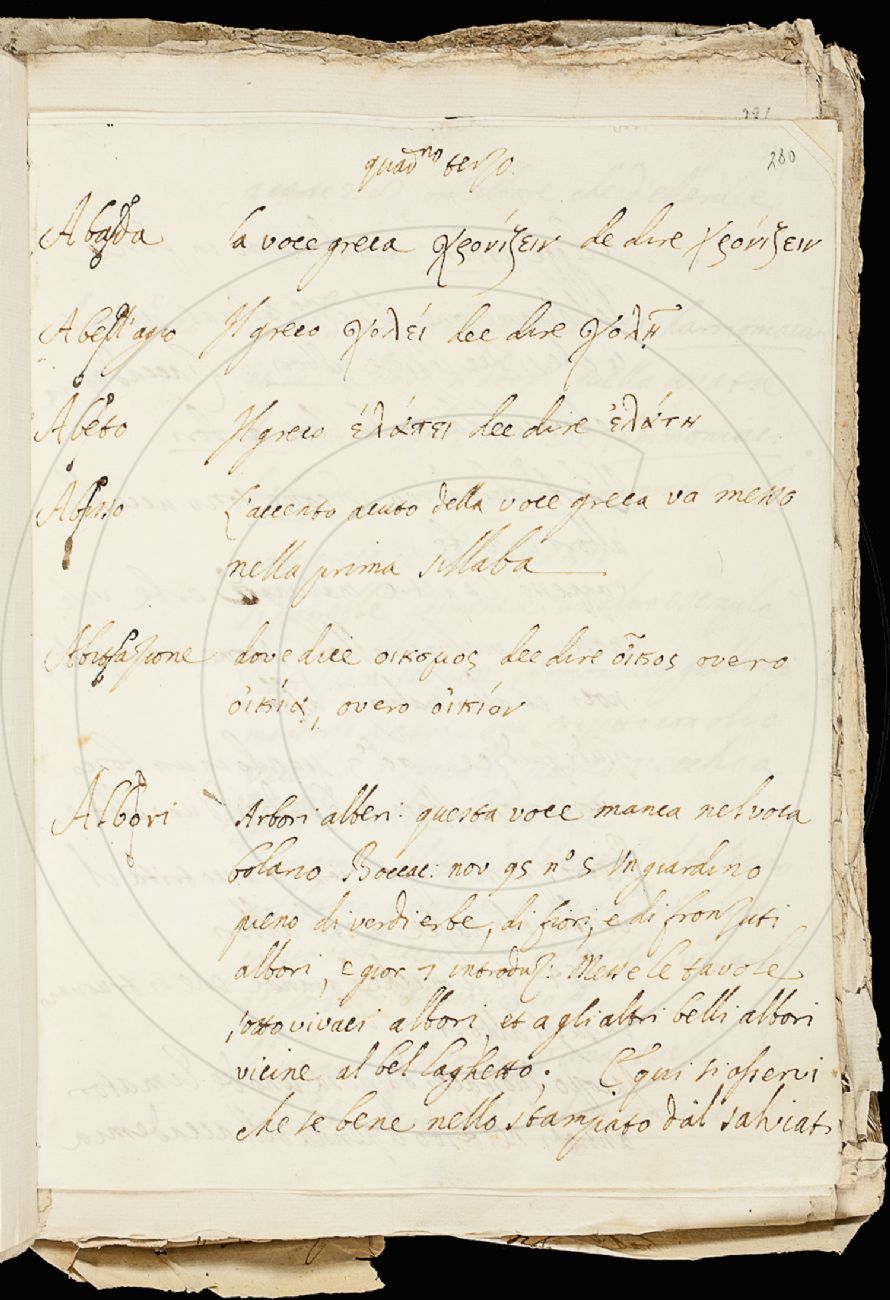 281
280
quad.no terzo.
Abada la voce greca χρονίζειν dee dire χρονίζειν
Abell'agio Il greco χολεί dee dire χολῇ
Abeto Il greco ἐλάτει dee dire ἐλάτη
Abisso L'accento acuto della voce greca va messo
nella prima sillaba
Abitazione dove dice οικομος dee dire οἶκος overo
οἰκία, overo οἰκίον
Albori Arbori alberi: questa voce manca nel voca
bolario Boccac: nov 95 n.o 5 Un giardino
pieno di verdi erbe, di fiori, e di fronzuti
albori, e gior 7 introduz: Messe le tavole
sotto vivaci albori, et agli altri belli albori
vicine al bel laghetto. E qui si osservi
che se bene nello stampato dal salviati